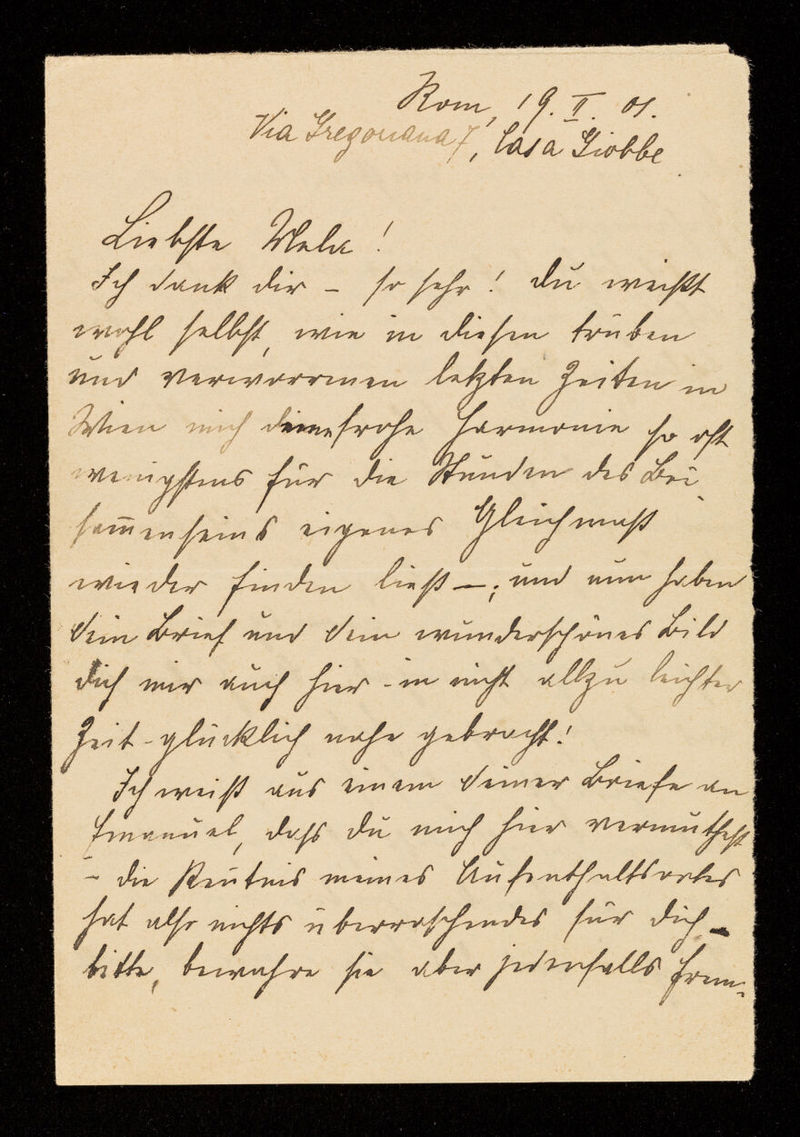 Rom, 19. II. 01.
Via Gregoriana 7, Casa Giobbe
Liebste Mela!
Ich dank dir – so sehr! du weißt
wohl selbst, wie in diesen trüben
und verworrenen letzten Zeiten in
Wien mich deine frohe Harmonie so oft
wenigstens für die Stunden des Bei¬
sam̅enseins eigenes Gleichmaß
wieder finden ließ –; und nun haben
dein Brief und dein wunderschönes Bild
dich mir auch hier – in nicht allzu leichter
Zeit – glücklich nahe gebracht!
Ich weiß aus einem deiner Briefe an
Emanuel, dass du mich hier vermuthest
– die Kentnis meines Aufenthaltsortes
hat also nichts überraschendes für dich –
bitte, bewahre sie aber jedenfalls